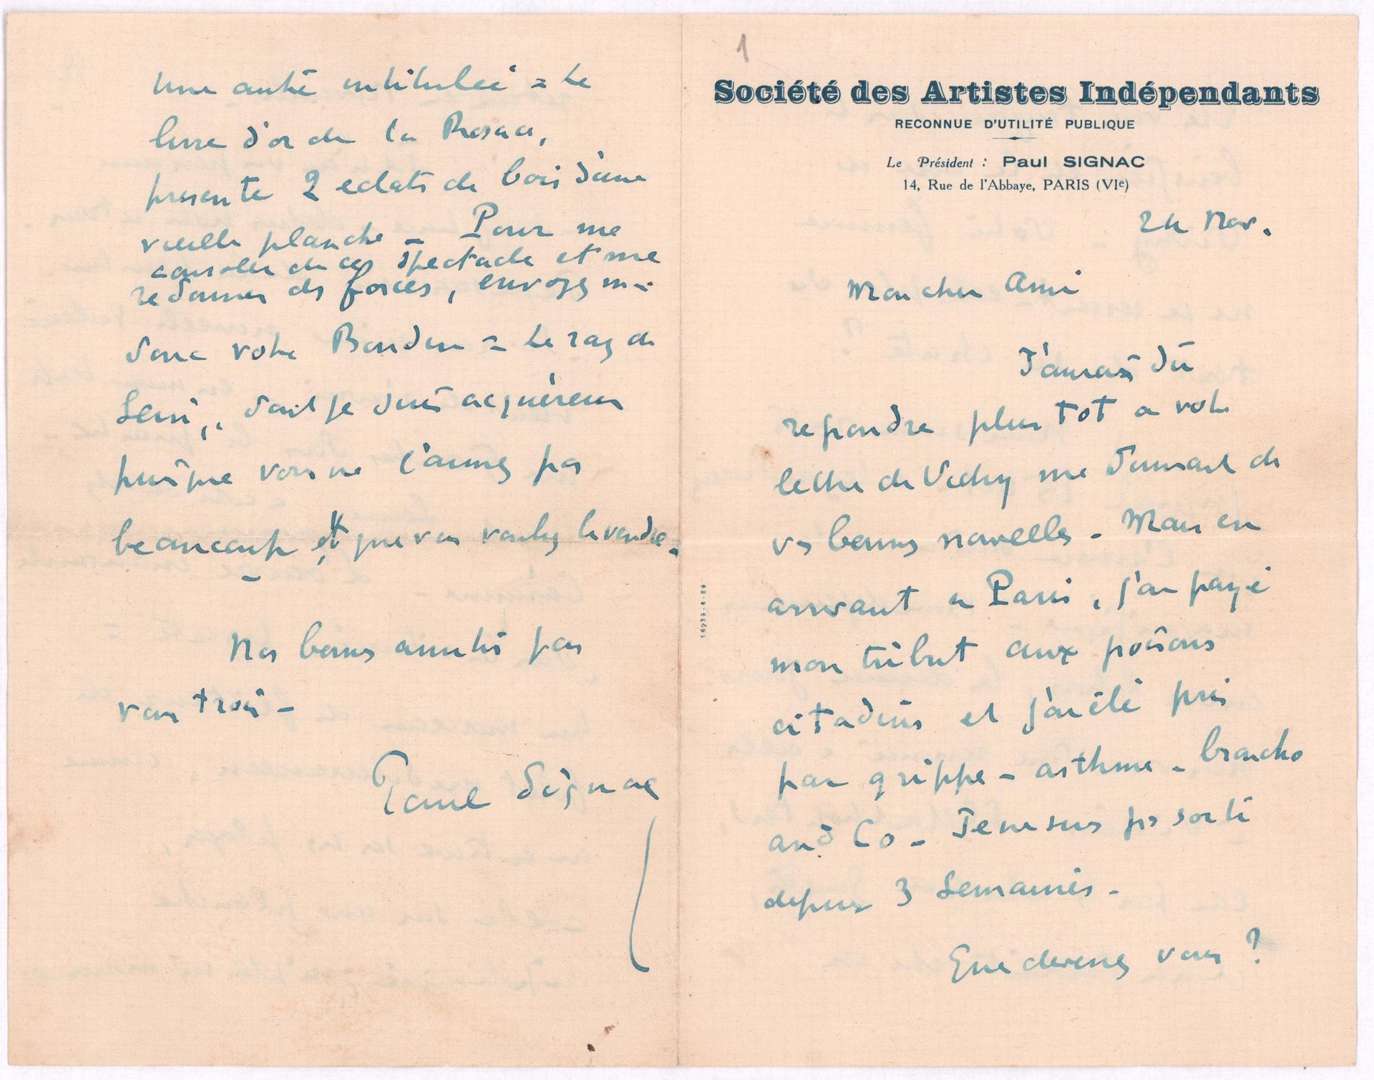 1
Société des Artistes Indépendants
RECONNUE D'UTILITÉ PUBLIQUE
Le Président : Paul SIGNAC
14, Rue de l'Abbaye, PARIS (VIe)
24 Nov.
Mon cher Ami
J'aurais dû
repondre plus tot a votre
lettre de Vichy me donnant de
vos bonnes nouvelles – Mais en
arrivant a Paris, j'ai payé
mon tribut aux poisons
citadins et j'ai été pris
par grippe – asthme – broncho
and Co – Je ne suis pas sorti
depuis 3 semaines –
Que devenez vous ?
Une autre intitulée = Le
livre d'or de la
presente 2 eclats de bois d'une
vieille planche – Pour me
consoler de ce spectacle et me
redonner des forces, envoyez m-
donc votre Boudin = Le raz de
Sein, dont je suis acquéreur
puisque vous ne l'aimez pas
beaucoup et que vous voulez le vendre –
Nos bonnes amitiés pour
vous trois –
Paul Signac